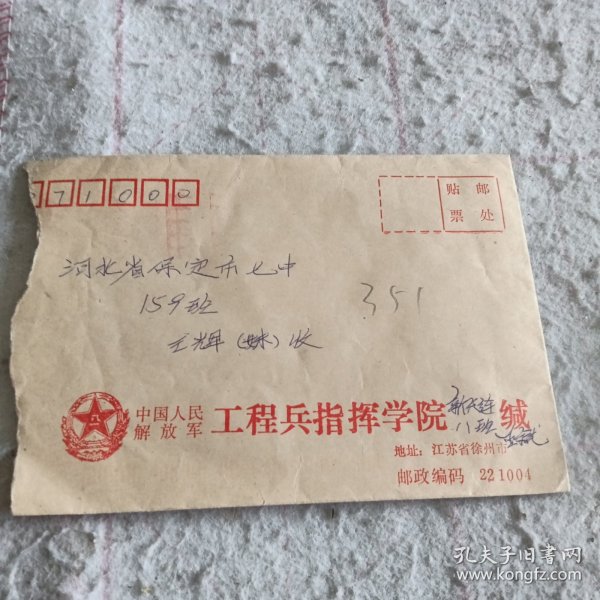 71000
贴 邮
票 处
河北省保定市七中
159班
王辉(妹)收
351
中国人民
解放军
工程兵指挥学院
八班
缄
地址：江苏省徐州市
邮政编码 221004
孔夫子旧书网
www.kongfz.com